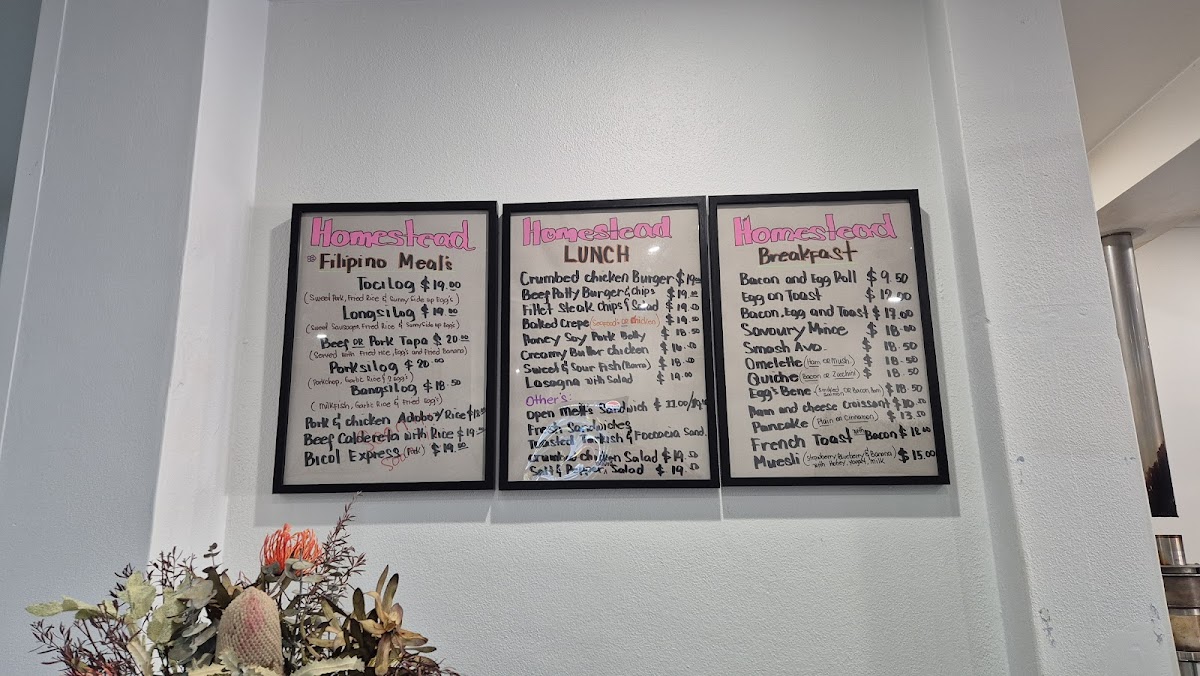 Homestead
Filipino Meal's
Tocilog $19.00
(Sweet Pork, Fried Rice & Sunny Side up Egg's)
Longsilog $19.00
(Sweet Sausage, Fried Rice & Sunny Side up Egg's)
Beef OR Pork Tapa $20.00
(Served with Fried rice, Egg's and Fried Banana)
Porksilog $20.00
(Porkchop, Garlic Rice & 2 egg's)
Bangsilog $18.50
(Milkfish, Garlic Rice & Fried Egg's)
Pork & chicken Adobo w/ Rice
Beef Caldereta with Rice $19.
Bicol Express (Pork) $19.00
Soon
Homestead
LUNCH
Crumbed chicken Burger $19
Beef Patty Burger & Chips $19.
Fillet Steak Chips & Salad $19.50
Baked Crepe (Seafood OR chicken) $19.50
Honey Soy Pork Belly $18.50
Creamy Butter chicken $
Sweet & Sour Fish (Barra) $18.
Lasagna with Salad $19.00
Other's:
Open Melts Sandwich $
Fresh Sandwiches
Toasted Turkish & Foccacia Sand.
Crumbed chicken Salad $19.50
Salt & Pepper Salad $19.50
Homestead
Breakfast
Bacon and Egg Roll $9.50
Egg on Toast $12.00
Bacon, Egg and Toast $17.00
Savoury Mince $18.00
Smash Avo $18.50
Omelette (Ham OR Mush.) $18.50
Quiche (Bacon or Zucchini) $18.50
Egg's Bene (Smoked Salmon OR Bacon, Ham) $18.50
Ham and cheese Croissant $10.50
Pancake (Plain or Cinnamon) $13.50
French Toast with Bacon $18.00
Muesli (Strawberry, Blueberry & Banana with Honey, Yogurt, Milk) $15.00